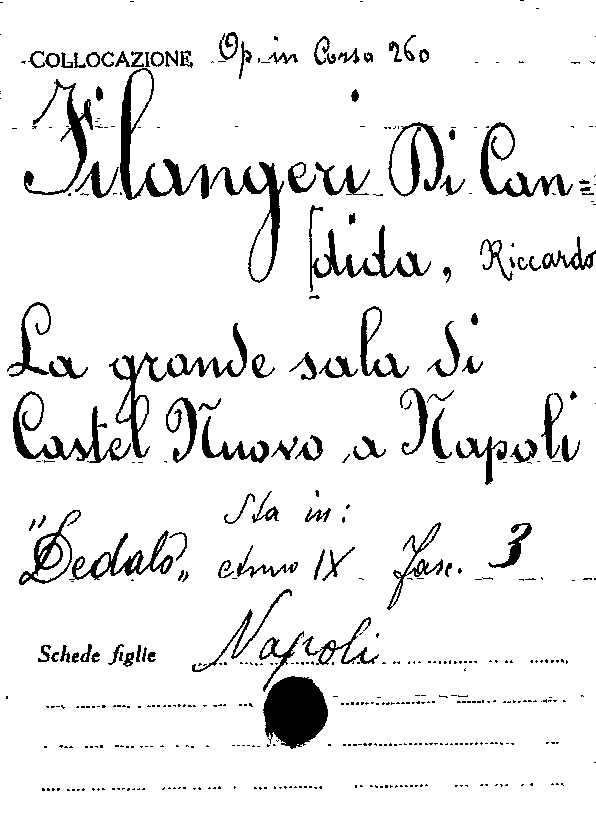 COLLOCAZIONE Op. in Corso 260
Filangeri Di Can=
[dida, Riccardo
La grande sala di
Castel Nuovo a Napoli
Sta in:
"Dedalo" Anno IX Fasc. 3
Schede figlie Napoli